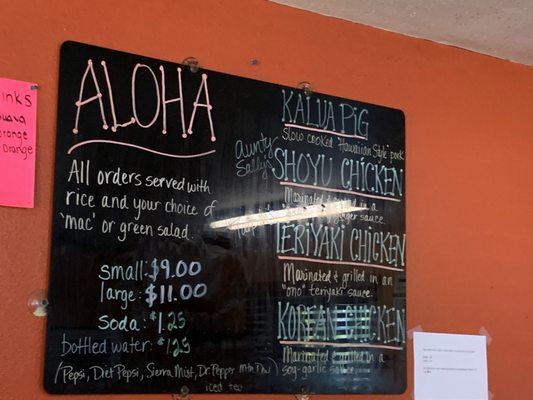 rinks
uava
orange
Orange
ALOHA
All orders served with
rice and your choice of
'mac' or green salad.
small: $9.00
large: $11.00
soda: $1.25
bottled water: $1.25
(Pepsi, Diet Pepsi, Sierra Mist, Dr. Pepper Mtn Dew
iced tea
KALUA PIG
Slow cooked Hawaiian Style pork
aunty
Sally's
SHOYU CHICKEN
Marinated & grilled in a
ginger sauce.
TERIYAKI CHICKEN
Marinated & grilled in an
"ono" teriyaki sauce.
KOREAN CHICKEN
Marinated & grilled in a
soy-garlic sauce.